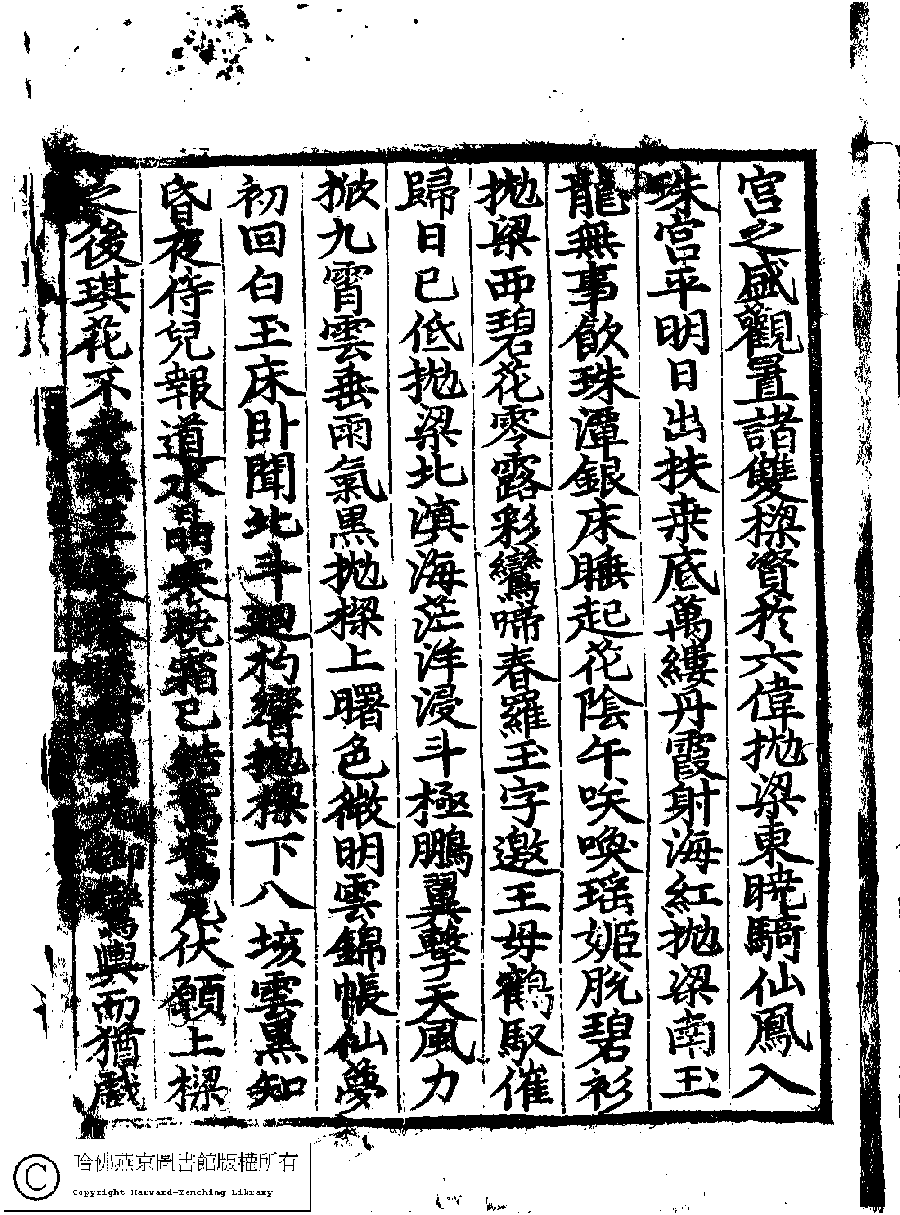 宮之盛觀置諸雙樑賢於六偉拋梁東曉騎仙鳳入
珠宮平明日出扶桒底萬縷丹霞射海紅拋梁南玉
龍無事飮珠潭銀床睡起花陰午咲喚瑤姬脫碧衫
拋梁西碧花零露彩鸞啼春羅玉字邀王母鶴馭催
歸日已低拋梁北溟海茫洋浸斗極鵬翼擊天風力
掀九霄雲垂雨氣黑拋樑上曙色微明雲錦帳仙夢
初回白玉床卧聞北斗廻杓響拋樑下八垓雲黑知
昏夜侍兒報道水晶寒曉霜已結鴛鴦瓦伏願上樑
之後琪花不老瑤草長春御鸞輿而猶戲
哈佛燕京圖書館版權所有
Copyright Harvard-Yenching Library